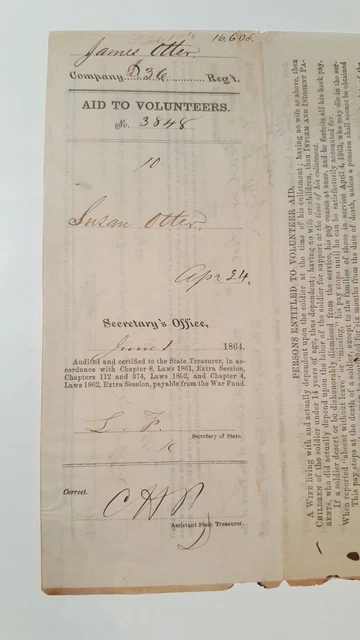 16,606.
James Otter
Company D 36 Reg't.
AID TO VOLUNTEERS.
No. 3848
10
Susan Otter.
Apr 24.
Secretary's Office,
June 1 1864.
Audited and certified to the State Treasurer, in ac-
cordance with Chapter 8, Laws 1861, Extra Session,
Chapters 112 and 374, Laws 1862, and Chapter 4,
Laws 1862, Extra Session, payable from the War Fund.
L. F.
Secretary of State.
Correct.
C H P
Assistant State Treasurer.
PERSONS ENTITLED TO VOLUNTEER AID.
A WIFE living with and actually dependent upon the soldier at the time of his enlistment; having no wife as above, then
CHILDREN of the soldier under 14 years of age, thus dependent; having no wife or children, then INFIRM AND INDIGENT PA-
RENTS, who did actually depend upon the labor of the soldier for support at the time of his enlistment.
If a soldier desert or be dishonorably dismissed from the service, his pay ceases at once, and he forfeits all his back pay.
When reported "absent without leave" or "missing," his pay stops until he can be satisfactorily accounted for.
This pay stops at the death of a soldier, except to the families of those in service April 4, 1863, who may die in the ser-
six months from the date of death, unless a pension shall sooner be obtained